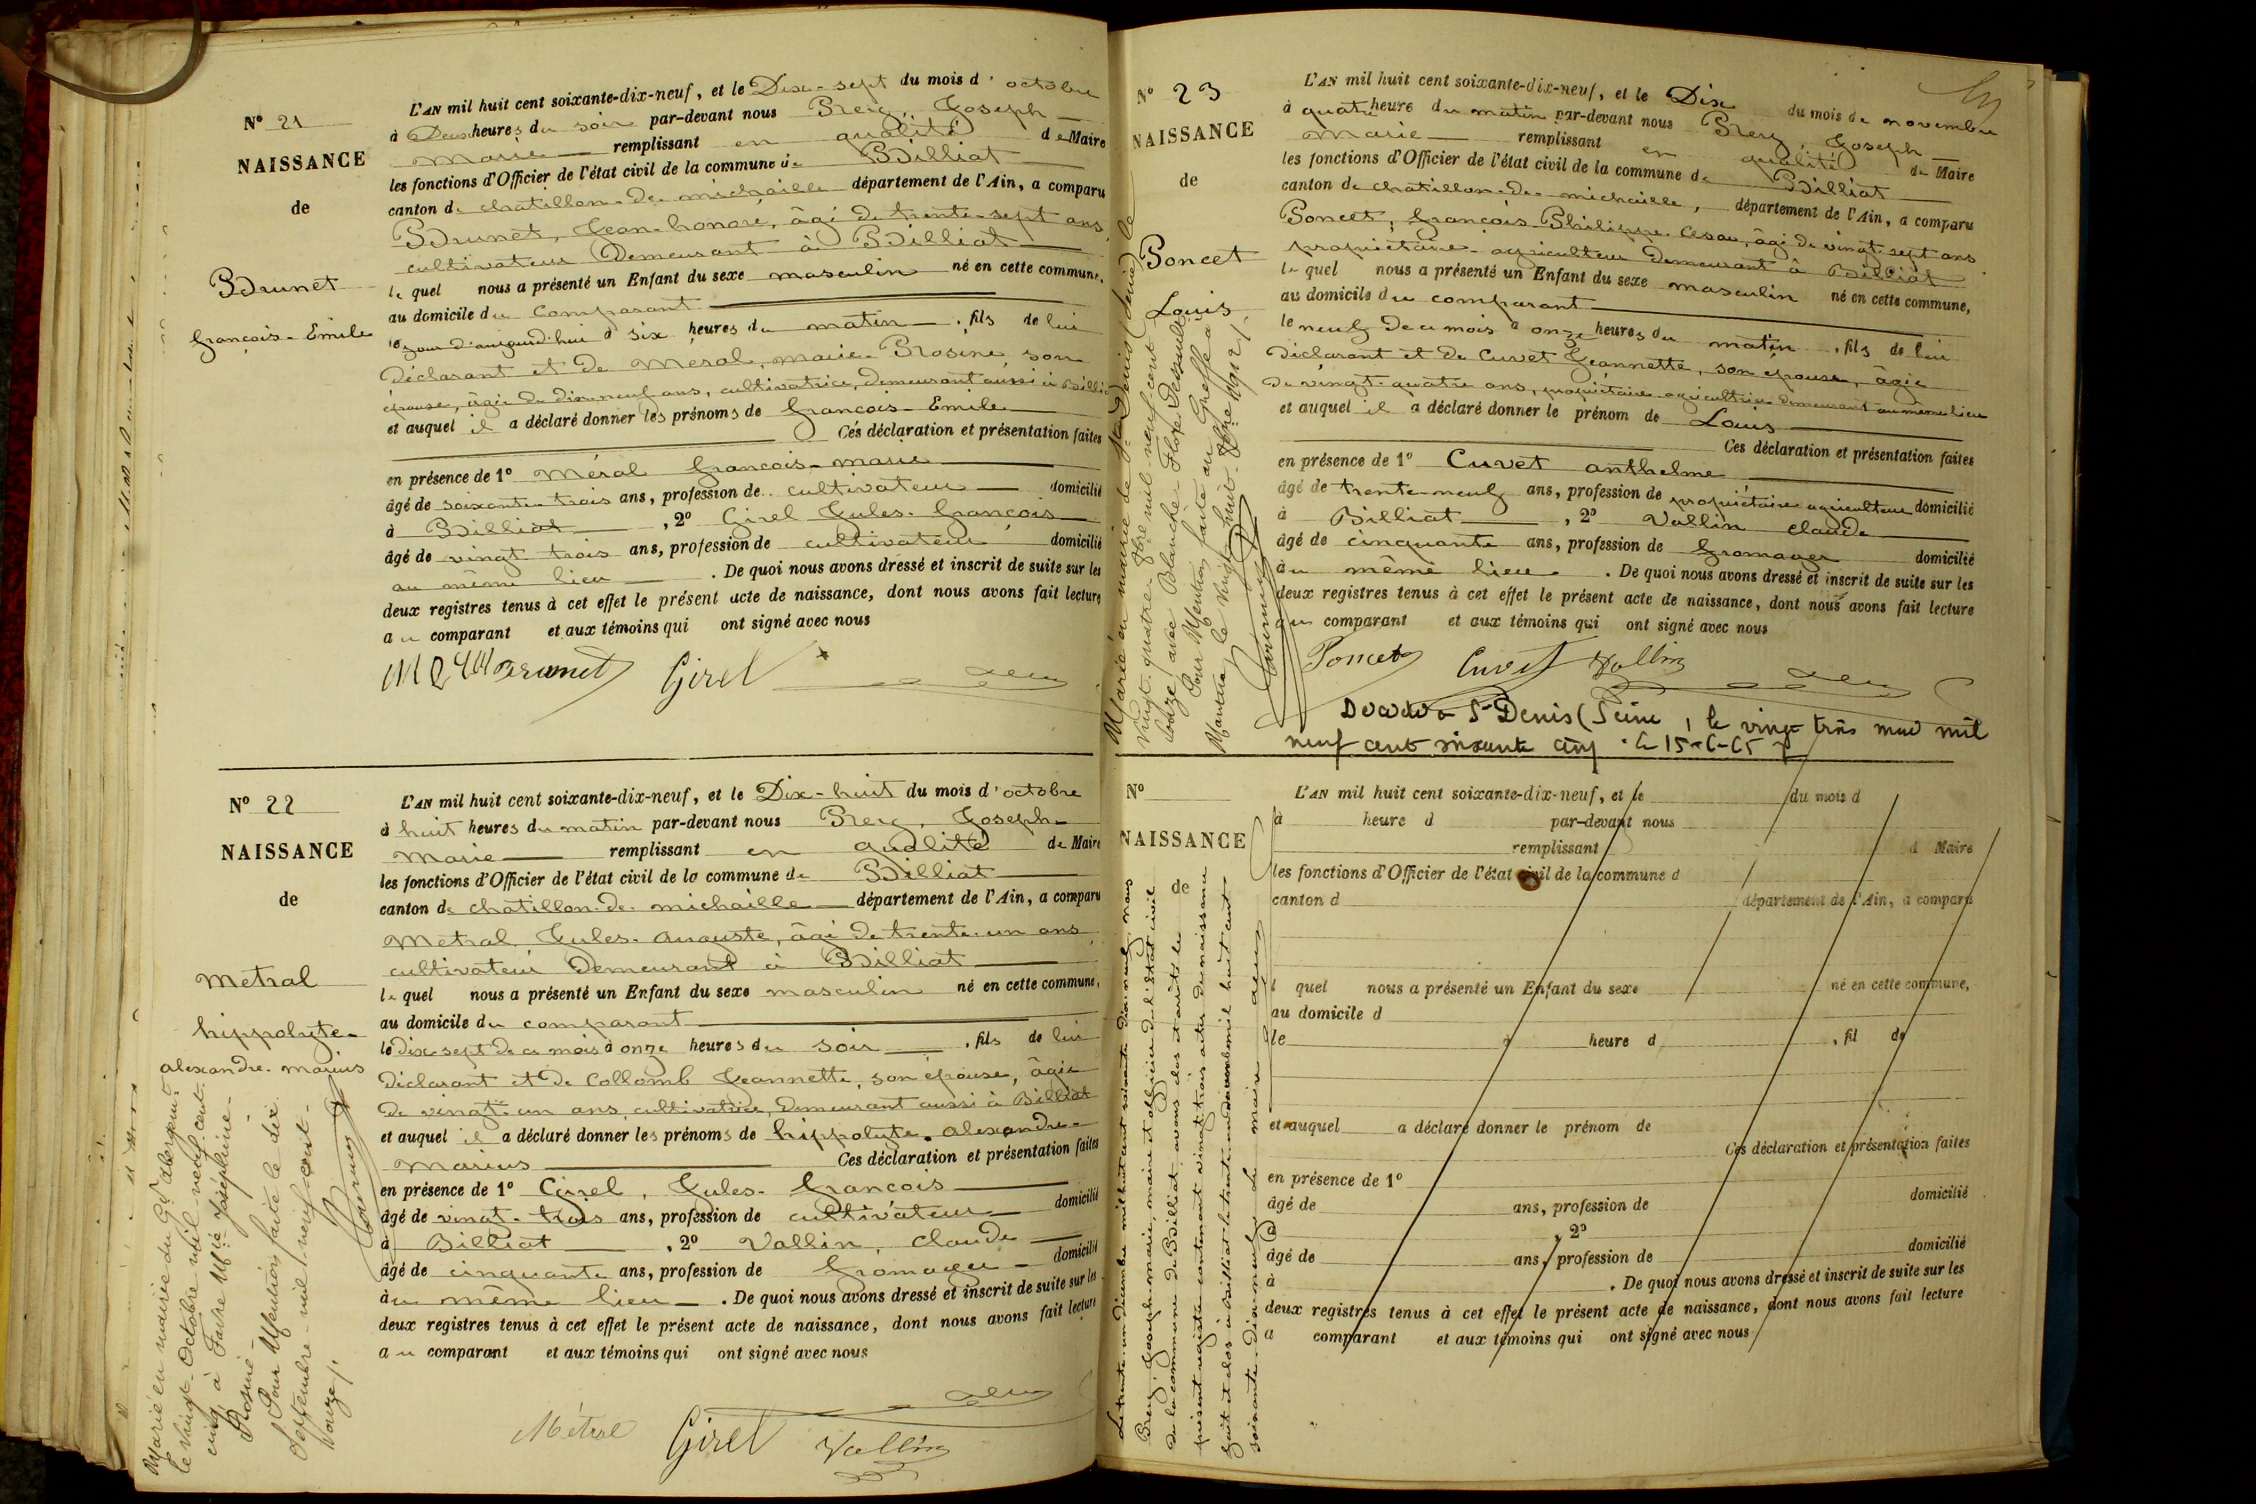 Nº 21
NAISSANCE
de
Brunet
François-Emile
L'AN mil huit cent soixante-dix-neuf, et le Dix-sept du mois d'octobre
à Deux heures du soir par-devant nous Brey, Joseph
Marie remplissant en qualité de Maire
les fonctions d'Officier de l'état civil de la commune de Billiat
canton de chatillon-de-michaille département de l'Ain, a comparu
Brunet, Jean-honoré, âgé de trente-sept ans,
cultivateur Demeurant à Billiat
le quel nous a présenté un Enfant du sexe masculin né en cette commune,
au domicile du comparant
le jour d'aujourd'hui à six heures du matin, fils de lui
déclarant et de Méral, marie-Rosine son
épouse, âgée de dix-neuf ans, cultivatrice, demeurant aussi à Billiat
et auquel il a déclaré donner les prénoms de François-Emile
Ces déclaration et présentation faites
en présence de 1º Méral François-marie
âgé de soixante-trois ans, profession de cultivateur domicilié
à Billiat, 2º Girel Jules-François
âgé de vingt trois ans, profession de cultivateur domicilié
au même lieu. De quoi nous avons dressé et inscrit de suite sur les
deux registres tenus à cet effet le présent acte de naissance, dont nous avons fait lecture
au comparant et aux témoins qui ont signé avec nous
Brunet Girel
Nº 22
NAISSANCE
de
Metral
hippolyte-
alexandre-marius
L'AN mil huit cent soixante-dix-neuf, et le Dix-huit du mois d'octobre
à huit heures du matin par-devant nous Brey, Joseph-
Marie remplissant en qualité de Maire
les fonctions d'Officier de l'état civil de la commune de Billiat
canton de chatillon-de-michaille département de l'Ain, a comparu
Metral Jules-auguste, âgé de trente-un ans
cultivateur Demeurant à Billiat
le quel nous a présenté un Enfant du sexe masculin né en cette commune,
au domicile du comparant
le dix-sept de ce mois à onze heures du soir, fils de lui
déclarant et de Collomb Jeannette, son épouse, âgée
de vingt-un ans, cultivatrice, demeurant aussi à Billiat
et auquel il a déclaré donner les prénoms de hippolyte-alexandre-
marius Ces déclaration et présentation faites
en présence de 1º Girel, Jules-François
âgé de vingt-trois ans, profession de cultivateur domicilié
à Billiat, 2º Vallin, Claude
âgé de cinquante ans, profession de fromager domicilié
au même lieu. De quoi nous avons dressé et inscrit de suite sur les
deux registres tenus à cet effet le présent acte de naissance, dont nous avons fait lecture
au comparant et aux témoins qui ont signé avec nous
Métral Girel Vallin
Marié en mairie du
le vingt-Octobre mil-neuf-cent-
cinq à Favre Mie Joséphine-
Rosine
Pour Mention faite le dix
Septembre-mil neuf-cent-
Nº 23
NAISSANCE
de
Poncet
Louis
L'AN mil huit cent soixante-dix-neuf, et le Dix du mois de novembre
à quatre heure du matin par-devant nous Brey, Joseph
Marie remplissant en qualité de Maire
les fonctions d'Officier de l'état civil de la commune de Billiat
canton de chatillon-de-michaille, département de l'Ain, a comparu
Poncet, François-Philippe-Cesar, âgé de vingt-sept ans
propriétaire-agriculteur demeurant à Billiat
le quel nous a présenté un Enfant du sexe masculin né en cette commune,
au domicile du comparant
le neuf de ce mois à onze heures du matin, fils de lui
déclarant et de Cuvet Jeannette, son épouse, âgée
de vingt-quatre ans, propriétaire agricultrice demeurant au même lieu
et auquel il a déclaré donner le prénom de Louis
Ces déclaration et présentation faites
en présence de 1º Cuvet anthelme
âgé de trente-neuf ans, profession de propriétaire agriculteur domicilié
à Billiat, 2º Vallin claude
âgé de cinquante ans, profession de fromager domicilié
au même lieu. De quoi nous avons dressé et inscrit de suite sur les
deux registres tenus à cet effet le présent acte de naissance, dont nous avons fait lecture
au comparant et aux témoins qui ont signé avec nous
Poncet Cuvet Vallin
Décédé à St Denis (Seine) le vingt trois mai mil
neuf cent soixante cinq. Le 15-6-65
Marié en mairie de St Denis (Seine) le
vingt-quatre-8bre mil-neuf-cent
douze avec Blanche-Flore
Pour Mention faite au Greffe à
Nantua le vingt-huit-8bre 1912
Nº
NAISSANCE
de
L'AN mil huit cent soixante-dix-neuf, et le du mois d
à heure d par-devant nous
remplissant d Maire
les fonctions d'Officier de l'état civil de la commune d
canton d département de l'Ain, a comparu
l quel nous a présenté un Enfant du sexe né en cette commune,
au domicile d
le à heure d, fil de
et auquel a déclaré donner le prénom de
Ces déclaration et présentation faites
en présence de 1º
âgé de ans, profession de domicilié
à, 2º
âgé de ans, profession de domicilié
à. De quoi nous avons dressé et inscrit de suite sur les
deux registres tenus à cet effet le présent acte de naissance, dont nous avons fait lecture
a comparant et aux témoins qui ont signé avec nous
Le trente-un décembre mil huit cent soixante dix-neuf, nous
Brey, Joseph-marie, maire et officier de l'état civil
de la commune de Billiat, avons clos et arrêté le
présent registre contenant vingt-trois actes de naissance
fait et clos à Billiat le trente-un décembre mil huit cent-
soixante-dix-neuf. Le maire